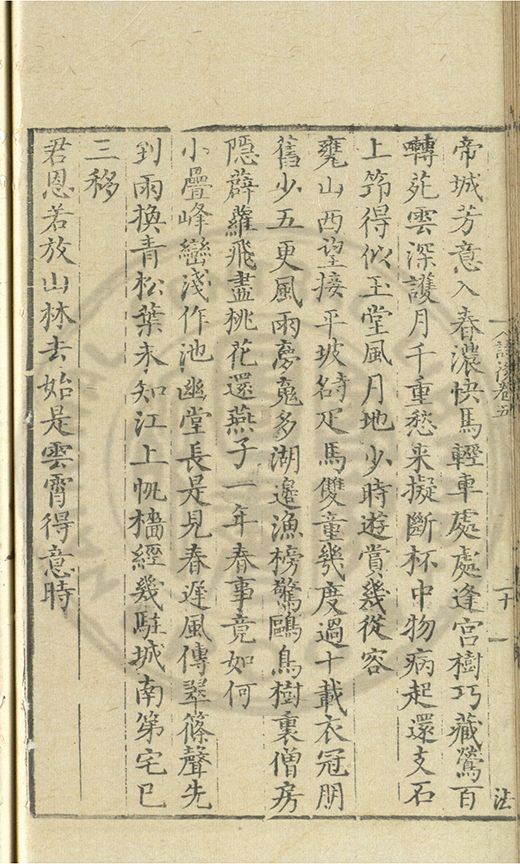 帝城芳意入春濃快馬輕車處處逢宮樹巧藏鶯百
囀苑雲深護月千重愁來擬斷杯中物病起還支石
上筇得似玉堂風月地少時遊賞幾從容
甕山西望接平坡匹馬雙童幾度過十載衣冠朋
舊少五更風雨夢魂多湖邊漁榜驚鷗鳥樹裏僧房
隱薜蘿飛盡桃花還燕子一年春事竟如何
小疊峰巒淺作池幽堂長是見春遲風傳翠篠聲先
到雨換青松葉未知江上帆檣經幾駐城南第宅已
三移
君恩若放山林去始是雲霄得意時
卷五
十一
法